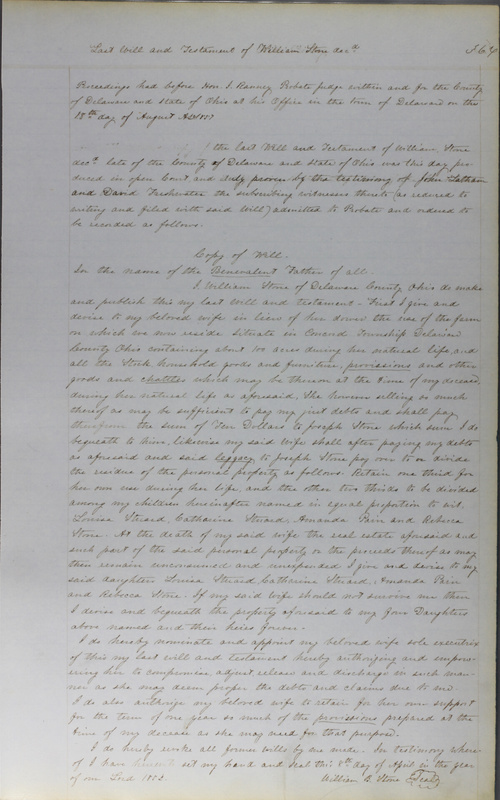 Last Will and Testament of William Stone decd.
Proceedings had before Hon. J. Ranney Probate Judge within and for the County
of Delaware and State of Ohio at his Office in the town of Delaware on the
18th day of August AD 1853
the last Will and Testament of William Stone
decd. late of the County of Delaware and State of Ohio was this day pro-
duced in open Court and duly proven by the testimony of John
and David Freshwater the subscribing witnesses thereto (as reduced to
writing and filed with said Will) admitted to Probate and ordered to
be recorded as follows:
Copy of Will.
In the name of the Benevalent Father of all.
I, William Stone of Delaware County Ohio do make
and publish this my last will and testament - First I give and
devise to my beloved wife in lieu of her dower the use of the farm
on which we now reside situate in Township Delaware
County Ohio containing about 100 acres during her natural life, and
all the Stock household goods and furniture, provissions and other
goods and chattles which may be thereon at the time of my decease,
during her natural life as aforesaid, She however selling so much
thereof as may be sufficient to pay my just debts and shall pay
therefrom the sum of Ten Dollars to Joseph Stone which sum I do
bequeath to him, likewise my said wife shall after paying my debts
as aforesaid and said leggacy to Joseph Stone pay over to or divide
the residue of the personal property as follows: Retain one third for
her own use during her life, and the other two thirds to be divided
among my children hereinafter named in equal proportion to wit,
Louisa Strard, Catharine Strard, Amanda Pain and Rebecca
Stone. At the death of my said wife the real estate aforesaid and
such part of the said personal property or the proceeds thereof as may
then remain unconsumed and unexpended I give and devise to my
said daughters Louisa Strard, Catharine Strard, Amanda Pain
and Rebecca Stone. If my said wife should not survive me then
I devise and bequeath the property aforesaid to my four Daughters
above named and their heirs forever.
I do hereby nominate and appoint my beloved wife sole executrix
of this my last will and testament hereby authorizing and empow-
ering her to compromise adjust release and discharge in such man-
ner as she may deem proper the debts and claims due to me.
I do also authorize my beloved wife to retain for her own support
for the term of one year so much of the provissions prepared at the
time of my decease as she may need for that purpose.
I do hereby revoke all former wills by me made. In testimony where-
of I have hereunto set my hand and seal this 8th day of April in the year
of our Lord 1853. William B. Stone Seal